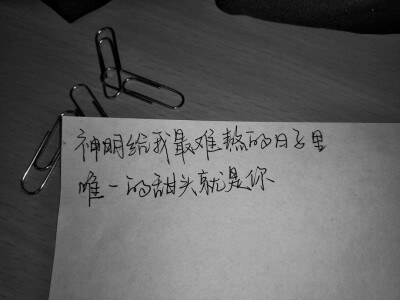 神明给我最难熬的日子里
唯一的甜头就是你